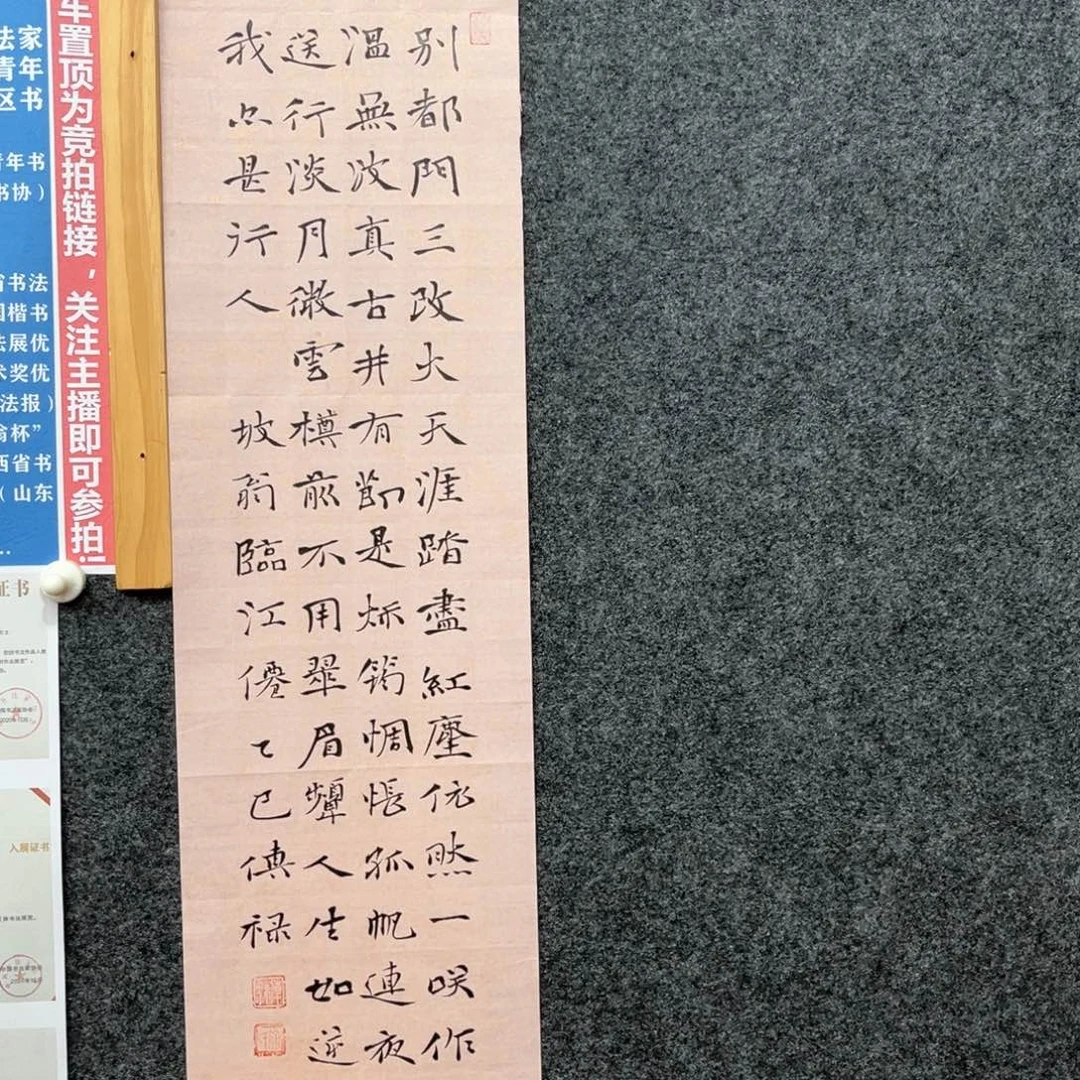 别都門三改火天涯踏盡紅塵依然一咲作
溫無波真古井有節是秌筠惆悵孤帆連夜
送行淡月微雲樽前不用翠眉顰人生如逆
我亦是行人
坡翁臨江僊乙巳禄
置顶为竞拍链接，关注主播即可参拍
法家
青年
区书
青年书
书协）
省书法
国楷书
法展优
术奖优
法报）
杯”
西省书
（山东
证书
入展证书